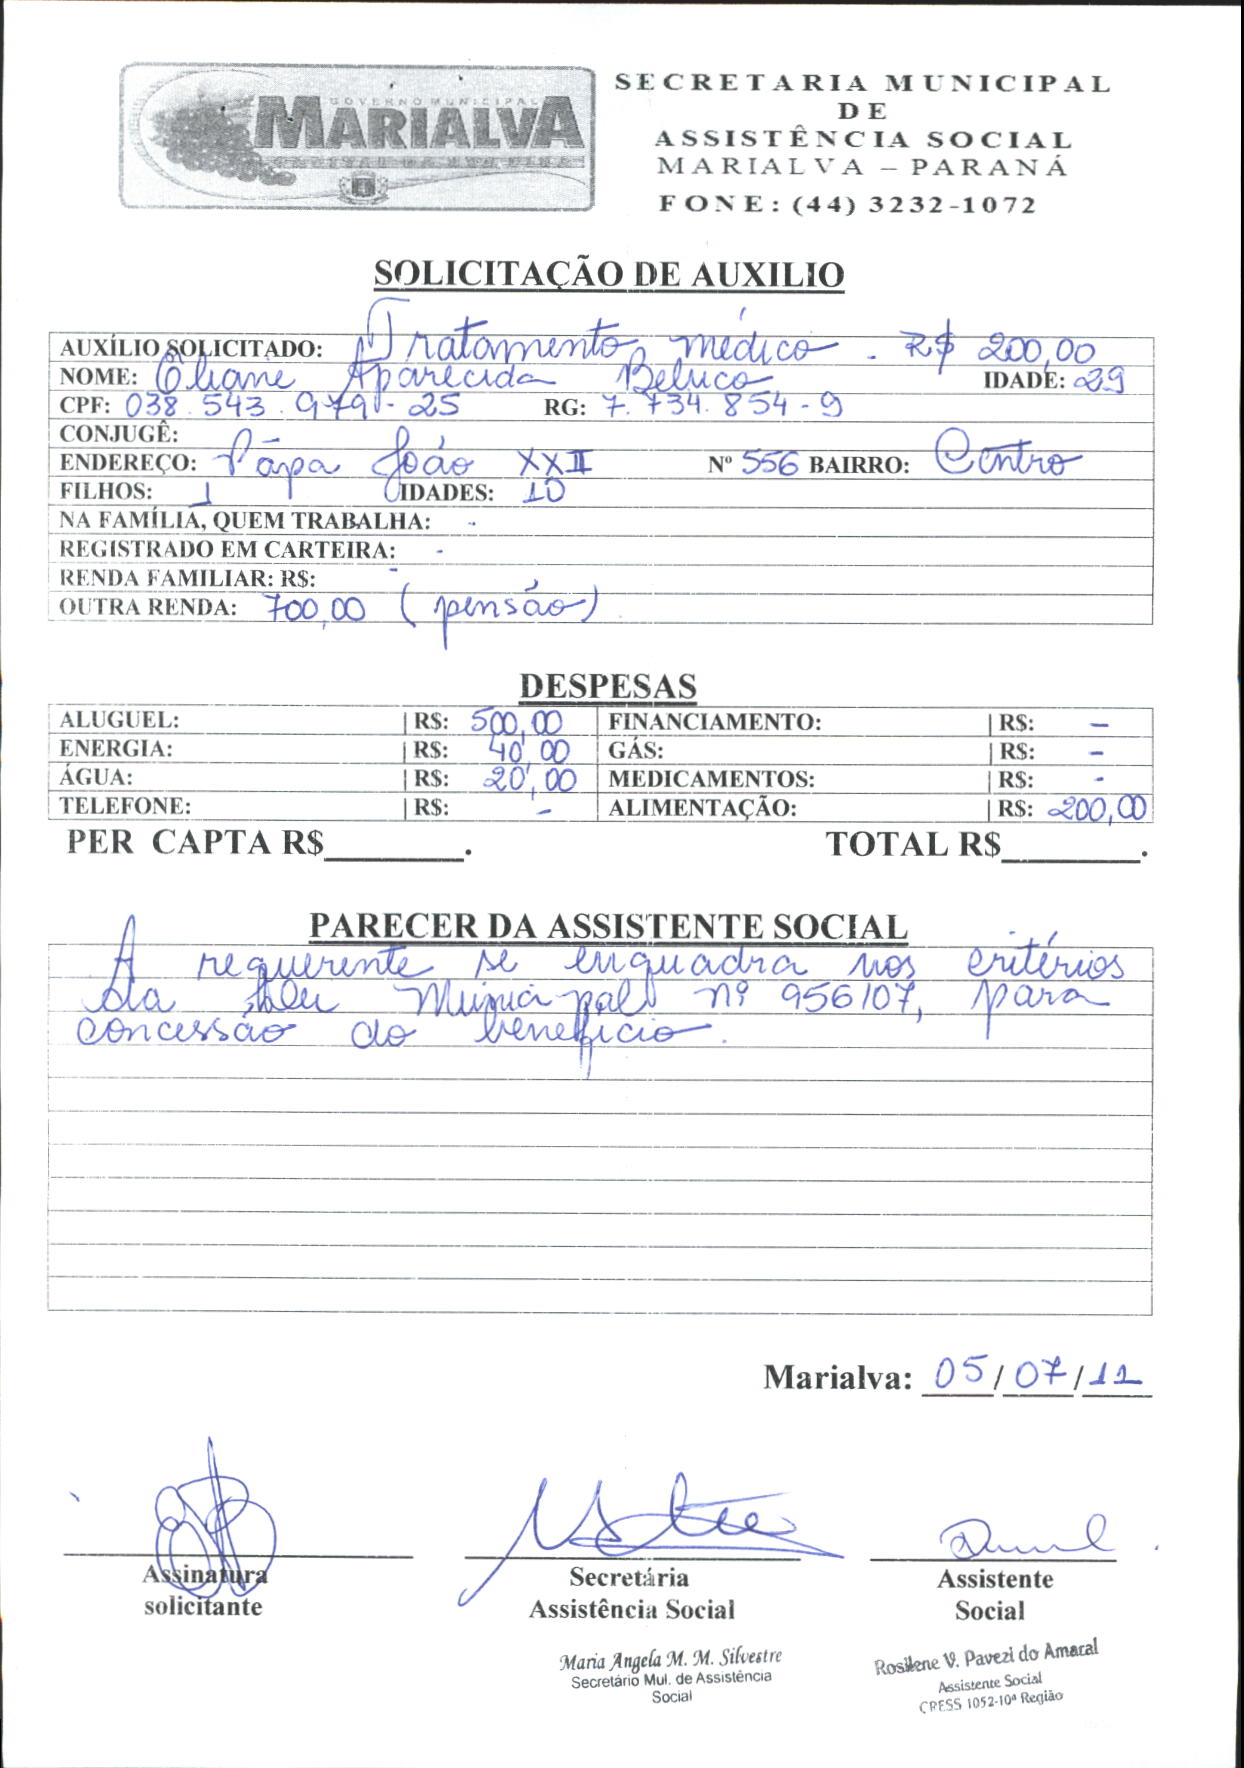 GOVERNO MUNICIPAL
MARIALVA
CAPITAL DA UVA FINA
SECRETARIA MUNICIPAL
DE
ASSISTÊNCIA SOCIAL
MARIALVA – PARANÁ
FONE: (44) 3232-1072
SOLICITAÇÃO DE AUXILIO
AUXÍLIO SOLICITADO: Tratamento médico - R$ 200,00
NOME: Eliane Aparecida Beluco IDADE: 29
CPF: 038.543.979-25 RG: 7.734.854-9
CONJUGÊ: -
ENDEREÇO: Papa João XXII Nº 556 BAIRRO: Centro
FILHOS: 1 IDADES: 10
NA FAMÍLIA, QUEM TRABALHA: -
REGISTRADO EM CARTEIRA: -
RENDA FAMILIAR: R$: -
OUTRA RENDA: 700,00 (pensão)
DESPESAS
ALUGUEL: R$: 500,00 FINANCIAMENTO: R$: -
ENERGIA: R$: 40,00 GÁS: R$: -
ÁGUA: R$: 20,00 MEDICAMENTOS: R$: -
TELEFONE: R$: - ALIMENTAÇÃO: R$: 200,00
PER CAPTA R$________. TOTAL R$________.
PARECER DA ASSISTENTE SOCIAL
A requerente se enquadra nos critérios
da Lei Municipal nº 956/07, para
concessão do benefício.
Marialva: 05/07/11
Assinatura Secretária Assistente
solicitante Assistência Social Social
Maria Angela M. M. Silvestre
Secretário Mul. de Assistência
Social
Rosilene V. Pavezi do Amaral
Assistente Social
CRESS 1052-10ª Região